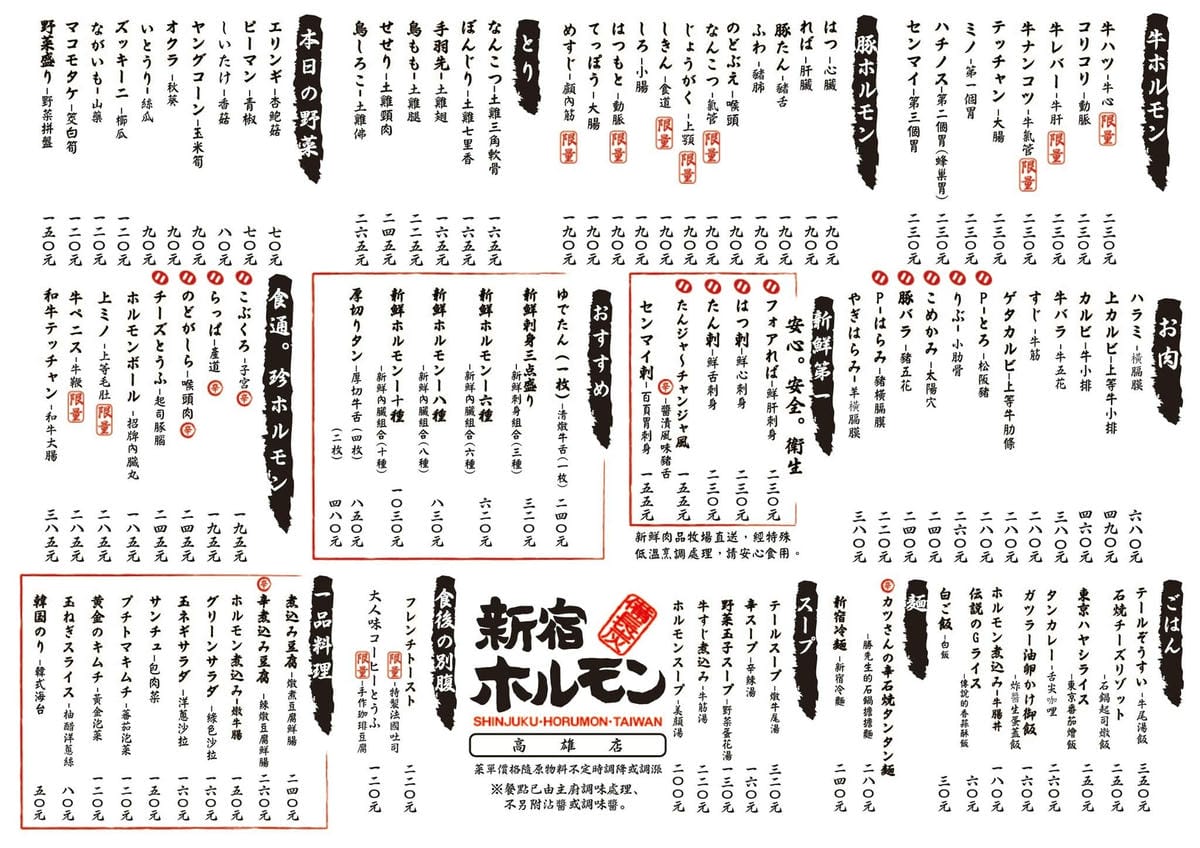 牛ホルモン
牛ハツ-牛心 限量 二三〇元
コリコリ-動脈 二三〇元
牛レバー-牛肝 限量 二三〇元
牛ナンコツ-牛氣管 限量 二三〇元
テッチャン-大腸 二三〇元
ミノ-第一個胃 二三〇元
ハチノス-第二個胃(蜂巢胃) 二三〇元
センマイ-第三個胃 二三〇元
豚ホルモン
はつ-心臟 一九〇元
れば-肝臟 一九〇元
豚たん-豬舌 一九〇元
ふわ-豬肺 一九〇元
のどぶえ-喉頭 一九〇元
なんこつ-氣管 限量 一九〇元
じょうがく-上顎 限量 一九〇元
しきん-食道 限量 一九〇元
しろ-小腸 一九〇元
はつもと-動脈 限量 一九〇元
てっぽう-大腸 一九〇元
めすじ-顱內筋 限量 一九〇元
とり
なんこつ-土雞三角軟骨 一六五元
ぼんじり-土雞七里香 一六五元
手羽先-土雞翅 一六五元
鳥もも-土雞腿 二二五元
せせり-土雞頸肉 二四五元
鳥しろこ-土雞佛 二六五元
本日の野菜
エリンギ-杏鮑菇 七〇元
ピーマン-青椒 七〇元
しいたけ-香菇 八〇元
ヤングコーン-玉米筍 九〇元
オクラ-秋葵 九〇元
いとうり-絲瓜 九〇元
ズッキーニ-櫛瓜 一二〇元
ながいも-山藥 一二〇元
マコモタケ-茭白筍 一二〇元
野菜盛り-野菜拼盤 一五〇元
お肉
ハラミ-橫膈膜 六八〇元
上カルビ-上等牛小排 四九〇元
カルビ-牛小排 四六〇元
牛バラ-牛五花 三八〇元
すじ-牛筋 二八〇元
ゲタカルビ-上等牛肋條 二八〇元
P-とろ-松阪豬 二八〇元
りぶ-小肋骨 二六〇元
こめかみ-太陽穴 二四〇元
豚バラ-豬五花 二四〇元
P-はらみ-豬橫膈膜 二二〇元
やぎはらみ-羊橫膈膜 三八〇元
新鮮第一
安心。安全。衛生
フォアれば-鮮肝刺身 二三〇元
はつ刺-鮮心刺身 二三〇元
たん刺-鮮舌刺身 二三〇元
たんジャ～チャンジャ風 辛-醬漬風味豬舌 一五五元
センマイ刺-百頁胃刺身 一五五元
新鮮肉品牧場直送，經特殊
低溫烹調處理，請安心食用。
おすすめ
ゆでたん(一枚)-清燉牛舌(一枚) 二四〇元
新鮮刺身三点盛り-新鮮刺身組合(三種) 三二〇元
新鮮ホルモン-六種-新鮮內臟組合(六種) 六二〇元
新鮮ホルモン-八種-新鮮內臟組合(八種) 八三〇元
新鮮ホルモン-十種-新鮮內臟組合(十種) 一〇三〇元
厚切りタン-厚切牛舌(四枚) 八五〇元
(二枚) 四八〇元
食通。珍ホルモン
こぶくろ-子宮 辛 一九五元
らっぱ-產道 辛 一九五元
のどがしら-喉頭肉 辛 二四五元
チーズとうふ-起司豚腦 二四五元
ホルモンボール-招牌內臟丸 一八五元
上ミノ-上等毛肚 限量 二八五元
牛ペニス-牛鞭 限量 二八五元
和牛テッチャン-和牛大腸 三八五元
ごはん
テールぞうすい-牛尾湯飯 三五〇元
石焼チーズリゾット-石鍋起司燉飯 二五〇元
東京ハヤシライス-東京番茄燴飯 二六〇元
タンカレー-舌尖咖哩 二六〇元
ガツラー油卵かけ御飯-炸醬生蛋蓋飯 一六〇元
ホルモン煮込み-牛腸丼 一八〇元
伝説のGライス-傳說的香蒜酥飯 一六〇元
白ご飯-白飯 三〇元
麺
辛 カツさんの辛石焼タンタン麺-勝先生的石鍋擔擔麵 二八〇元
新宿冷麺-新宿冷麵 二四〇元
スープ
テールスープ-燉牛尾湯 三二〇元
辛スープ-辛辣湯 二四〇元
野菜玉子スープ-野菜蛋花湯 一三〇元
牛すじ煮込み-牛筋湯 三二〇元
ホルモンスープ-美顏湯 二〇〇元
新宿
ホルモン
SHINJUKU·HORUMON·TAIWAN
高雄店
菜單價格隨原物料不定時調降或調漲
※餐點已由主廚調味處理、
不另附沾醬或調味醬。
食後の別腹
フレンチトースト 限量-特製法國吐司 二二〇元
大人味コーヒーとうふ 限量-手作珈琲豆腐 一二〇元
一品料理
煮込み豆腐-燉煮豆腐鮮腸 二四〇元
辛 辛煮込み豆腐-辣燉豆腐鮮腸 二六〇元
ホルモン煮込み-燉牛腸 一五〇元
グリーンサラダ-綠色沙拉 一六〇元
玉ネギサラダ-洋蔥沙拉 一五〇元
サンチュ-包肉菜 一二〇元
プチトマキムチ-番茄泡菜 一二〇元
黄金のキムチ-黃金泡菜 一〇〇元
玉ねぎスライス-柚醋洋蔥絲 八〇元
韓国のり-韓式海台 五〇元